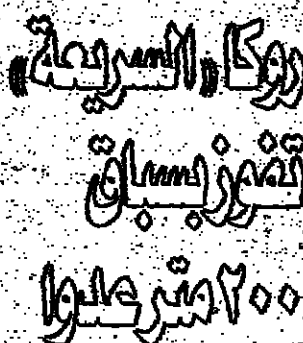 روكا «السريعة»
تفوز بسباق
٢٠٠ متر عدوا